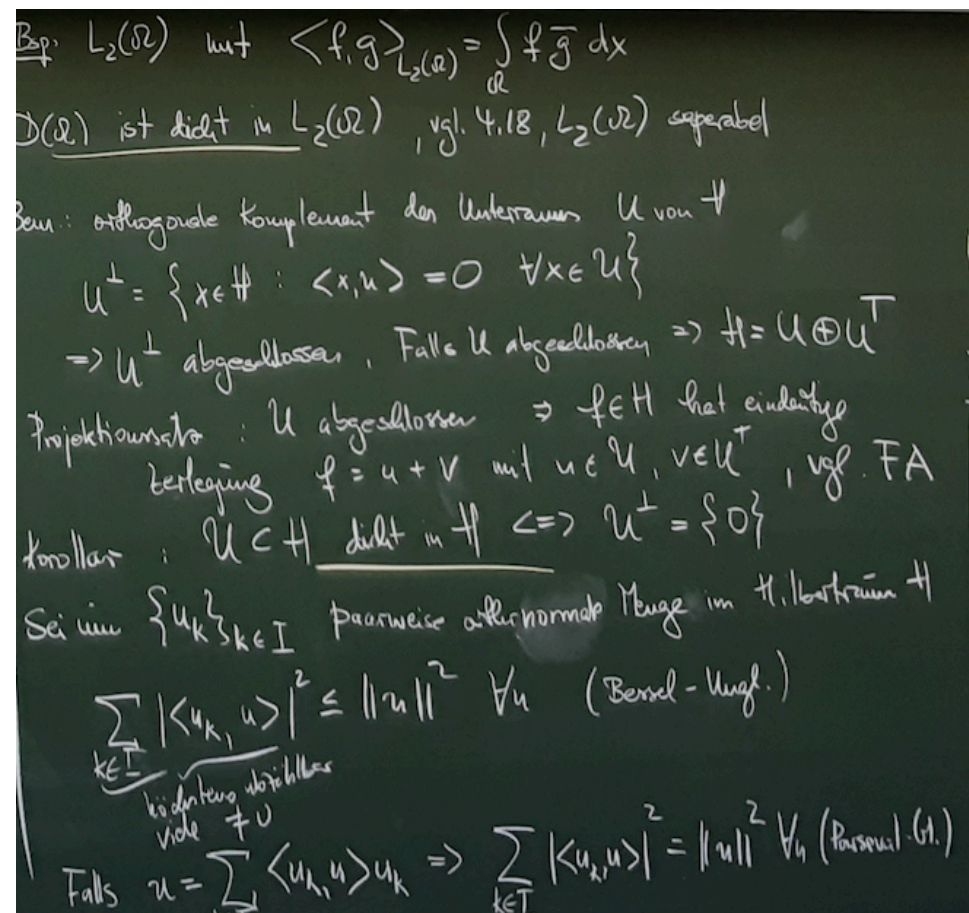 Bsp: L₂(Ω) mit <f,g>_{L₂(Ω)} = ∫_Ω f g̅ dx
D(Ω) ist dicht in L₂(Ω), vgl. 4.18, L₂(Ω) seperabel
Bem.: orthogonale Komplement des Unterraums U von H
U^⊥ = {x∈H : <x,u> = 0 ∀x∈U}
=> U^⊥ abgeschlossen, Falls U abgeschlossen => H = U⊕U^T
Projektionssatz : U abgeschlossen ⇒ f∈H hat eindeutige
Zerlegung f = u + v mit u∈U, v∈U^T, vgl. FA
Korollar : U⊂H dicht in H <=> U^⊥ = {0}
Sei nun {u_k}_{k∈I} paarweise orthonormale Menge im Hilbertraum H
∑_{k∈I} |<u_k, u>|² ≤ ||u||² ∀u (Bessel-Ungl.)
höchstens abzählbar
viele ≠ 0
Falls u = ∑ <u_k,u>u_k => ∑_{k∈I} |<u_k,u>|² = ||u||² ∀u (Parseval. Gl.)